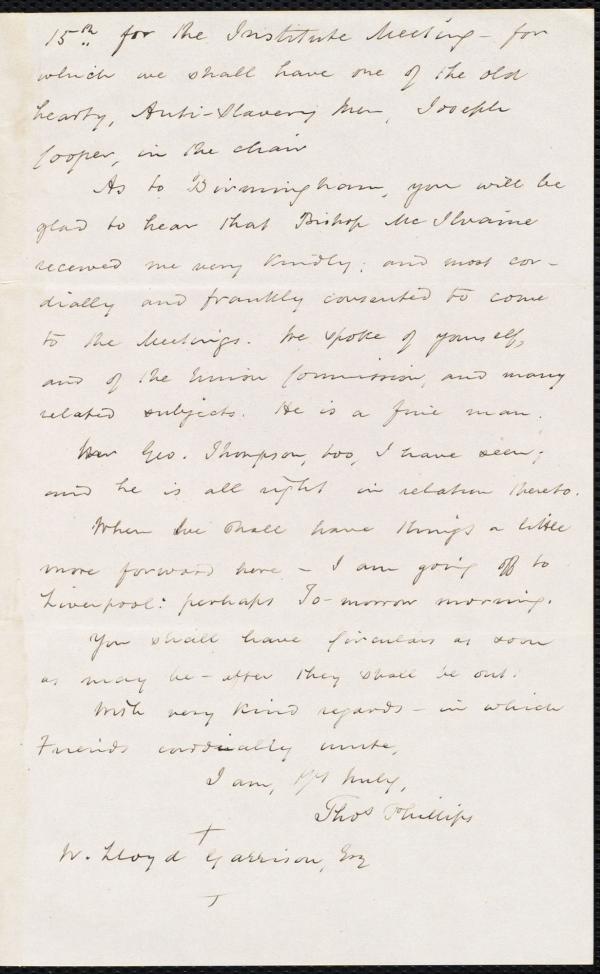 15th for the Institute Meeting – for
which we shall have one of the old
hearty, Anti-Slavery Men, Joseph
Cooper, in the chair
As to Birmingham, you will be
glad to hear that Bishop McIlvaine
received me very kindly; and most cor-
dially and frankly consented to come
to the Meetings. We spoke of yourself,
and of the Union Commission, and many
related subjects. He is a fine man.
Geo. Thompson, too, I have seen;
and he is all right in relation thereto.
When we shall have things a little
more forward here – I am going off to
Liverpool: perhaps To-morrow morning.
You shall have Circulars as soon
as may be – after they shall be out.
With very kind regards – in which
Friends cordially unite,
I am, Yrs truly,
Thos Phillips
W. Lloyd Garrison, Esq